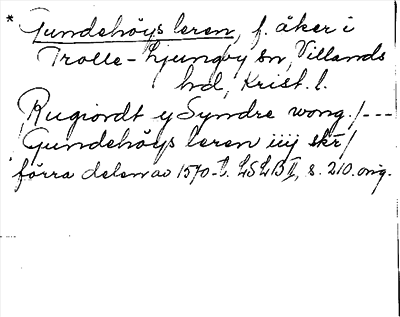 * Gundehöys leren, f. åker i
Trolle-Ljungby sn, Villands
hd, Krist. l.
Rugiordt y Syndre wong./---
Gundehöys leren iiij skr/
förra delen av 1570-t. LSLB II, s. 210. orig.